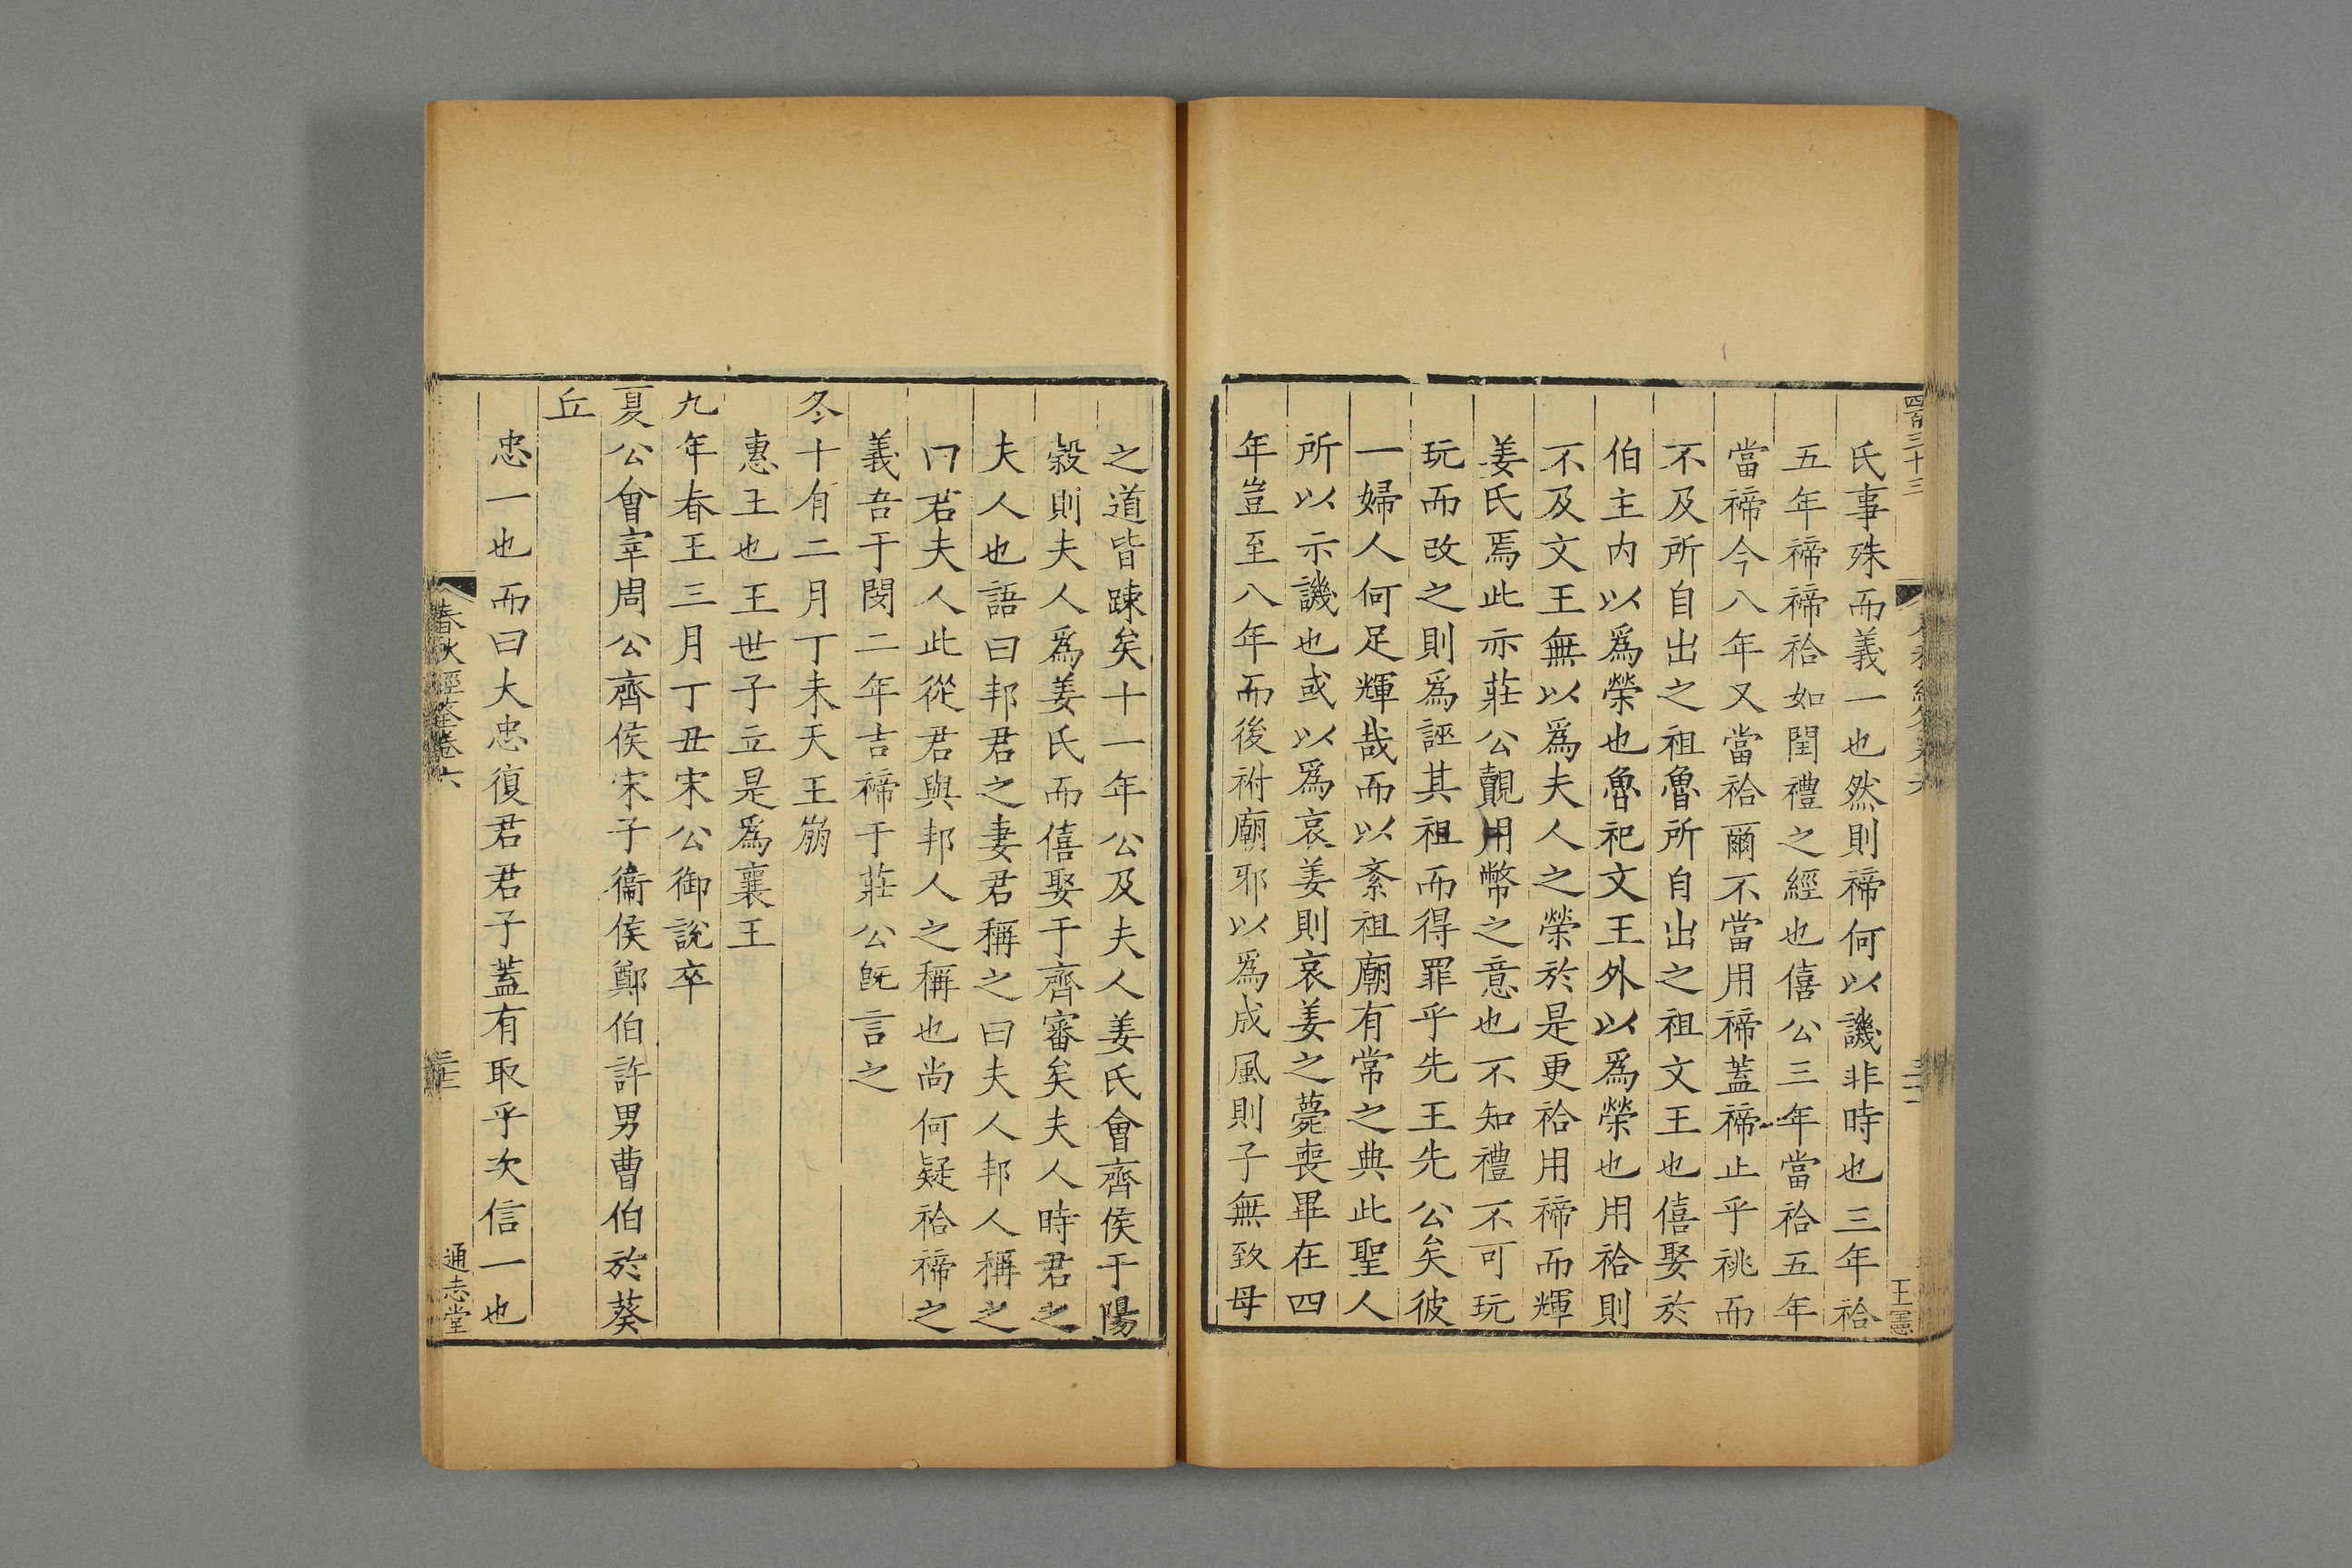 四百三十三
王憲
氏事殊而義一也然則禘何以譏非時也三年祫
五年禘禘祫如閏禮之經也僖公三年當祫五年
當禘今八年又當祫爾不當用禘蓋禘止乎祧而
不及所自出之祖魯所自出之祖文王也僖娶於
伯主内以爲榮也魯祀文王外以爲榮也用祫則
不及文王無以爲夫人之榮於是更祫用禘而輝
姜氏焉此亦莊公覿用幣之意也不知禮不可玩
玩而改之則爲誣其祖而得罪乎先王先公矣彼
一婦人何足輝哉而以紊祖廟有常之典此聖人
所以示譏也或以爲哀姜則哀姜之薨喪畢在四
年豈至八年而後祔廟邪以爲成風則子無致母
之道皆踈矣十一年公及夫人姜氏會齊侯于陽
穀則夫人爲姜氏而僖娶于齊審矣夫人時君之
夫人也語曰邦君之妻君稱之曰夫人邦人稱之
曰君夫人此從君與邦人之稱也尚何疑祫禘之
義吾于閔二年吉禘于莊公旣言之
冬十有二月丁未天王崩
惠王也王世子立是爲襄王
九年春王三月丁丑宋公御說卒
夏公會宰周公齊侯宋子衞侯鄭伯許男曹伯於葵
丘
忠一也而曰大忠復君君子蓋有取乎次信一也
春秋經筌卷六
通志堂